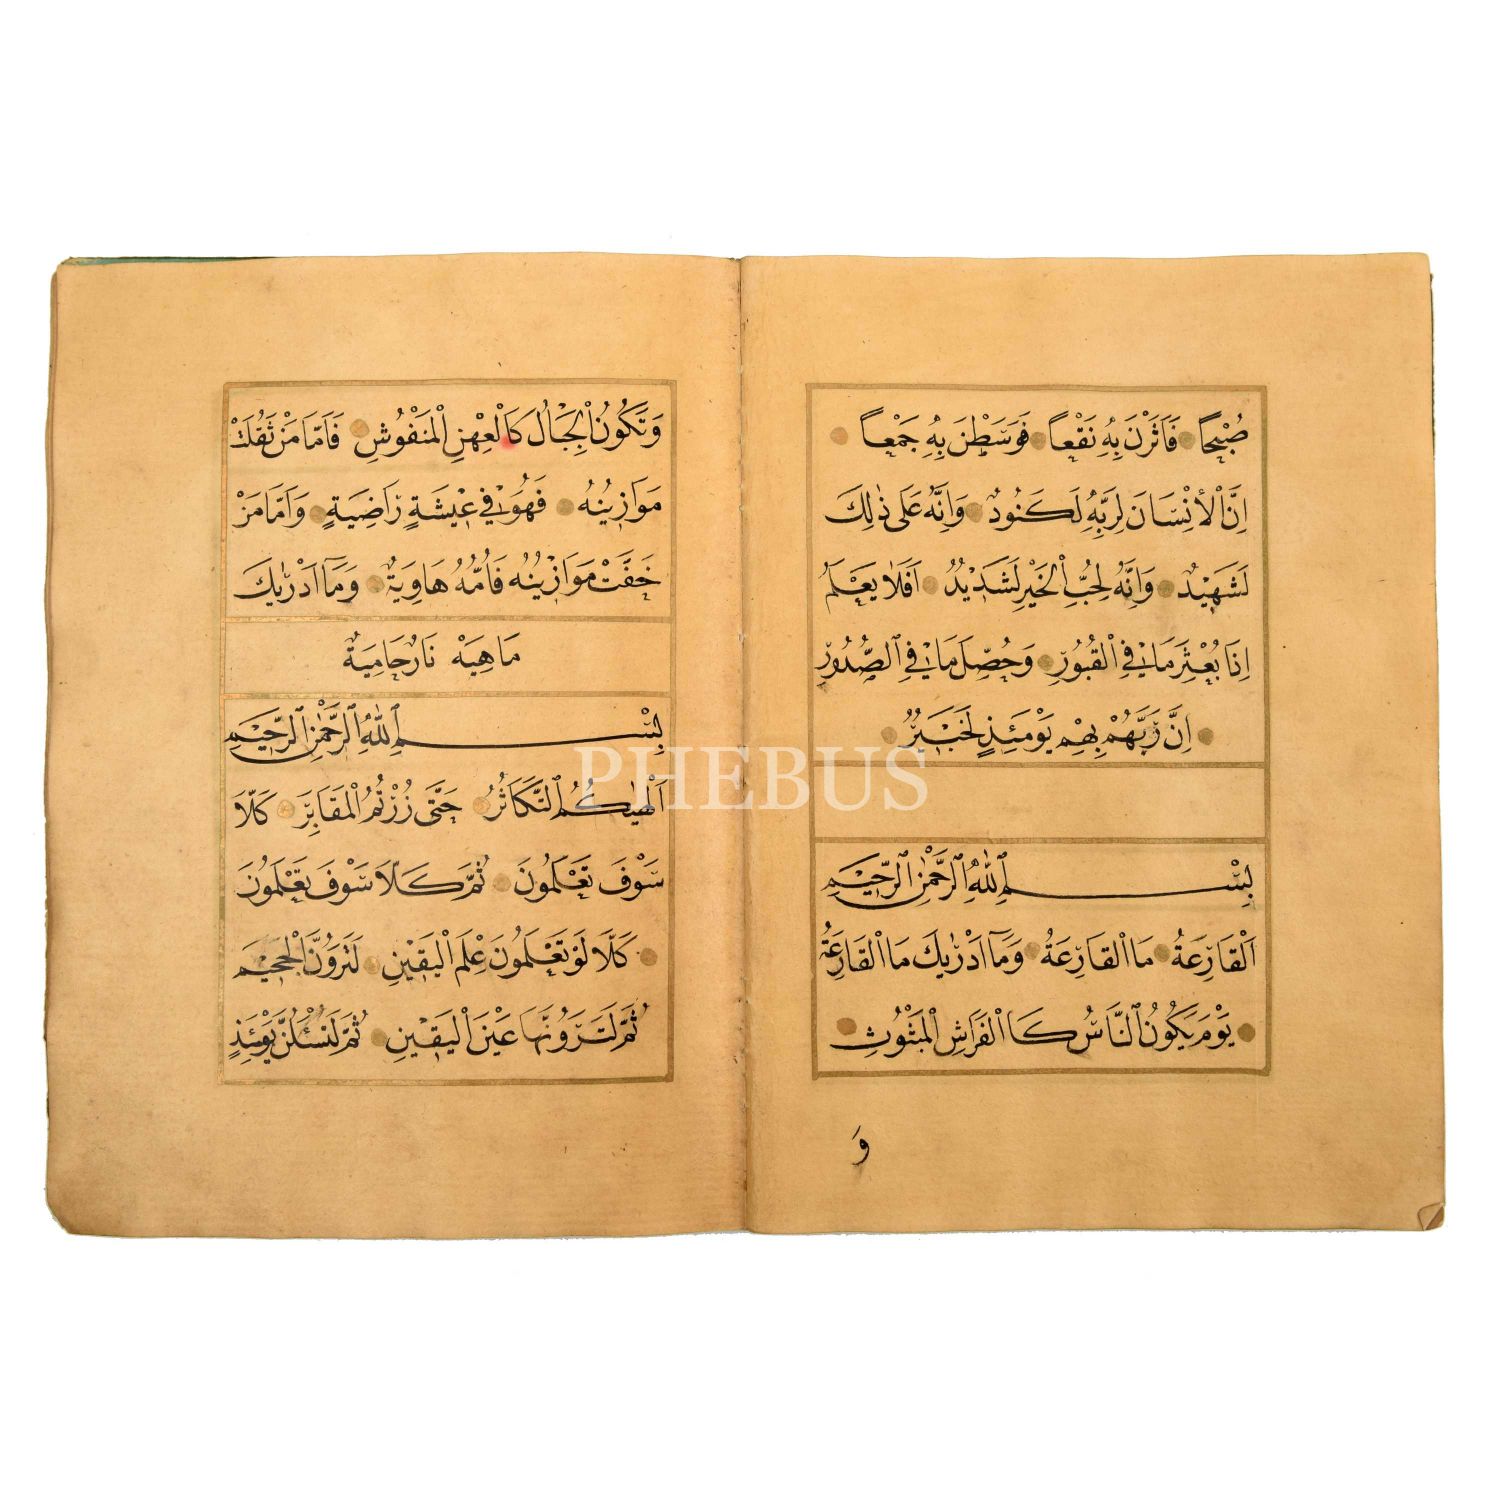 صُبْحًا فَاَثَرْنَ بِهِ نَقْعًا فَوَسَطْنَ بِهِ جَمْعًا
اِنَّ الْاِنْسَانَ لِرَبِّهِ لَكَنُودٌ وَاِنَّهُ عَلٰى ذٰلِكَ
لَشَهِيْدٌ وَاِنَّهُ لِحُبِّ الْخَيْرِ لَشَدِيْدٌ اَفَلَا يَعْلَمُ
اِذَا بُعْثِرَ مَا فِي الْقُبُورِ وَحُصِّلَ مَا فِي الصُّدُورِ
اِنَّ رَبَّهُمْ بِهِمْ يَوْمَئِذٍ لَخَبِيْرٌ
بِسْمِ اللّٰهِ الرَّحْمٰنِ الرَّحِيْمِ
اَلْقَارِعَةُ مَا الْقَارِعَةُ وَمَآ اَدْرٰيكَ مَا الْقَارِعَةُ
يَوْمَ يَكُونُ النَّاسُ كَالْفَرَاشِ الْمَبْثُوثِ
وَ
وَتَكُونُ الْجِبَالُ كَالْعِهْنِ الْمَنْفُوشِ فَاَمَّا مَنْ ثَقُلَتْ
مَوَازِينُهُ فَهُوَ فِي عِيْشَةٍ رَاضِيَةٍ وَاَمَّا مَنْ
خَفَّتْ مَوَازِينُهُ فَاُمُّهُ هَاوِيَةٌ وَمَآ اَدْرٰيكَ
مَاهِيَهْ نَارٌ حَامِيَةٌ
بِسْمِ اللّٰهِ الرَّحْمٰنِ الرَّحِيْمِ
اَلْهٰيكُمُ التَّكَاثُرُ حَتّٰى زُرْتُمُ الْمَقَابِرَ كَلَّا
سَوْفَ تَعْلَمُونَ ثُمَّ كَلَّا سَوْفَ تَعْلَمُونَ
كَلَّا لَوْ تَعْلَمُونَ عِلْمَ الْيَقِيْنِ لَتَرَوُنَّ الْجَحِيْمَ
ثُمَّ لَتَرَوُنَّهَا عَيْنَ الْيَقِيْنِ ثُمَّ لَتُسْئَلُنَّ يَوْمَئِذٍ
PHEBUS